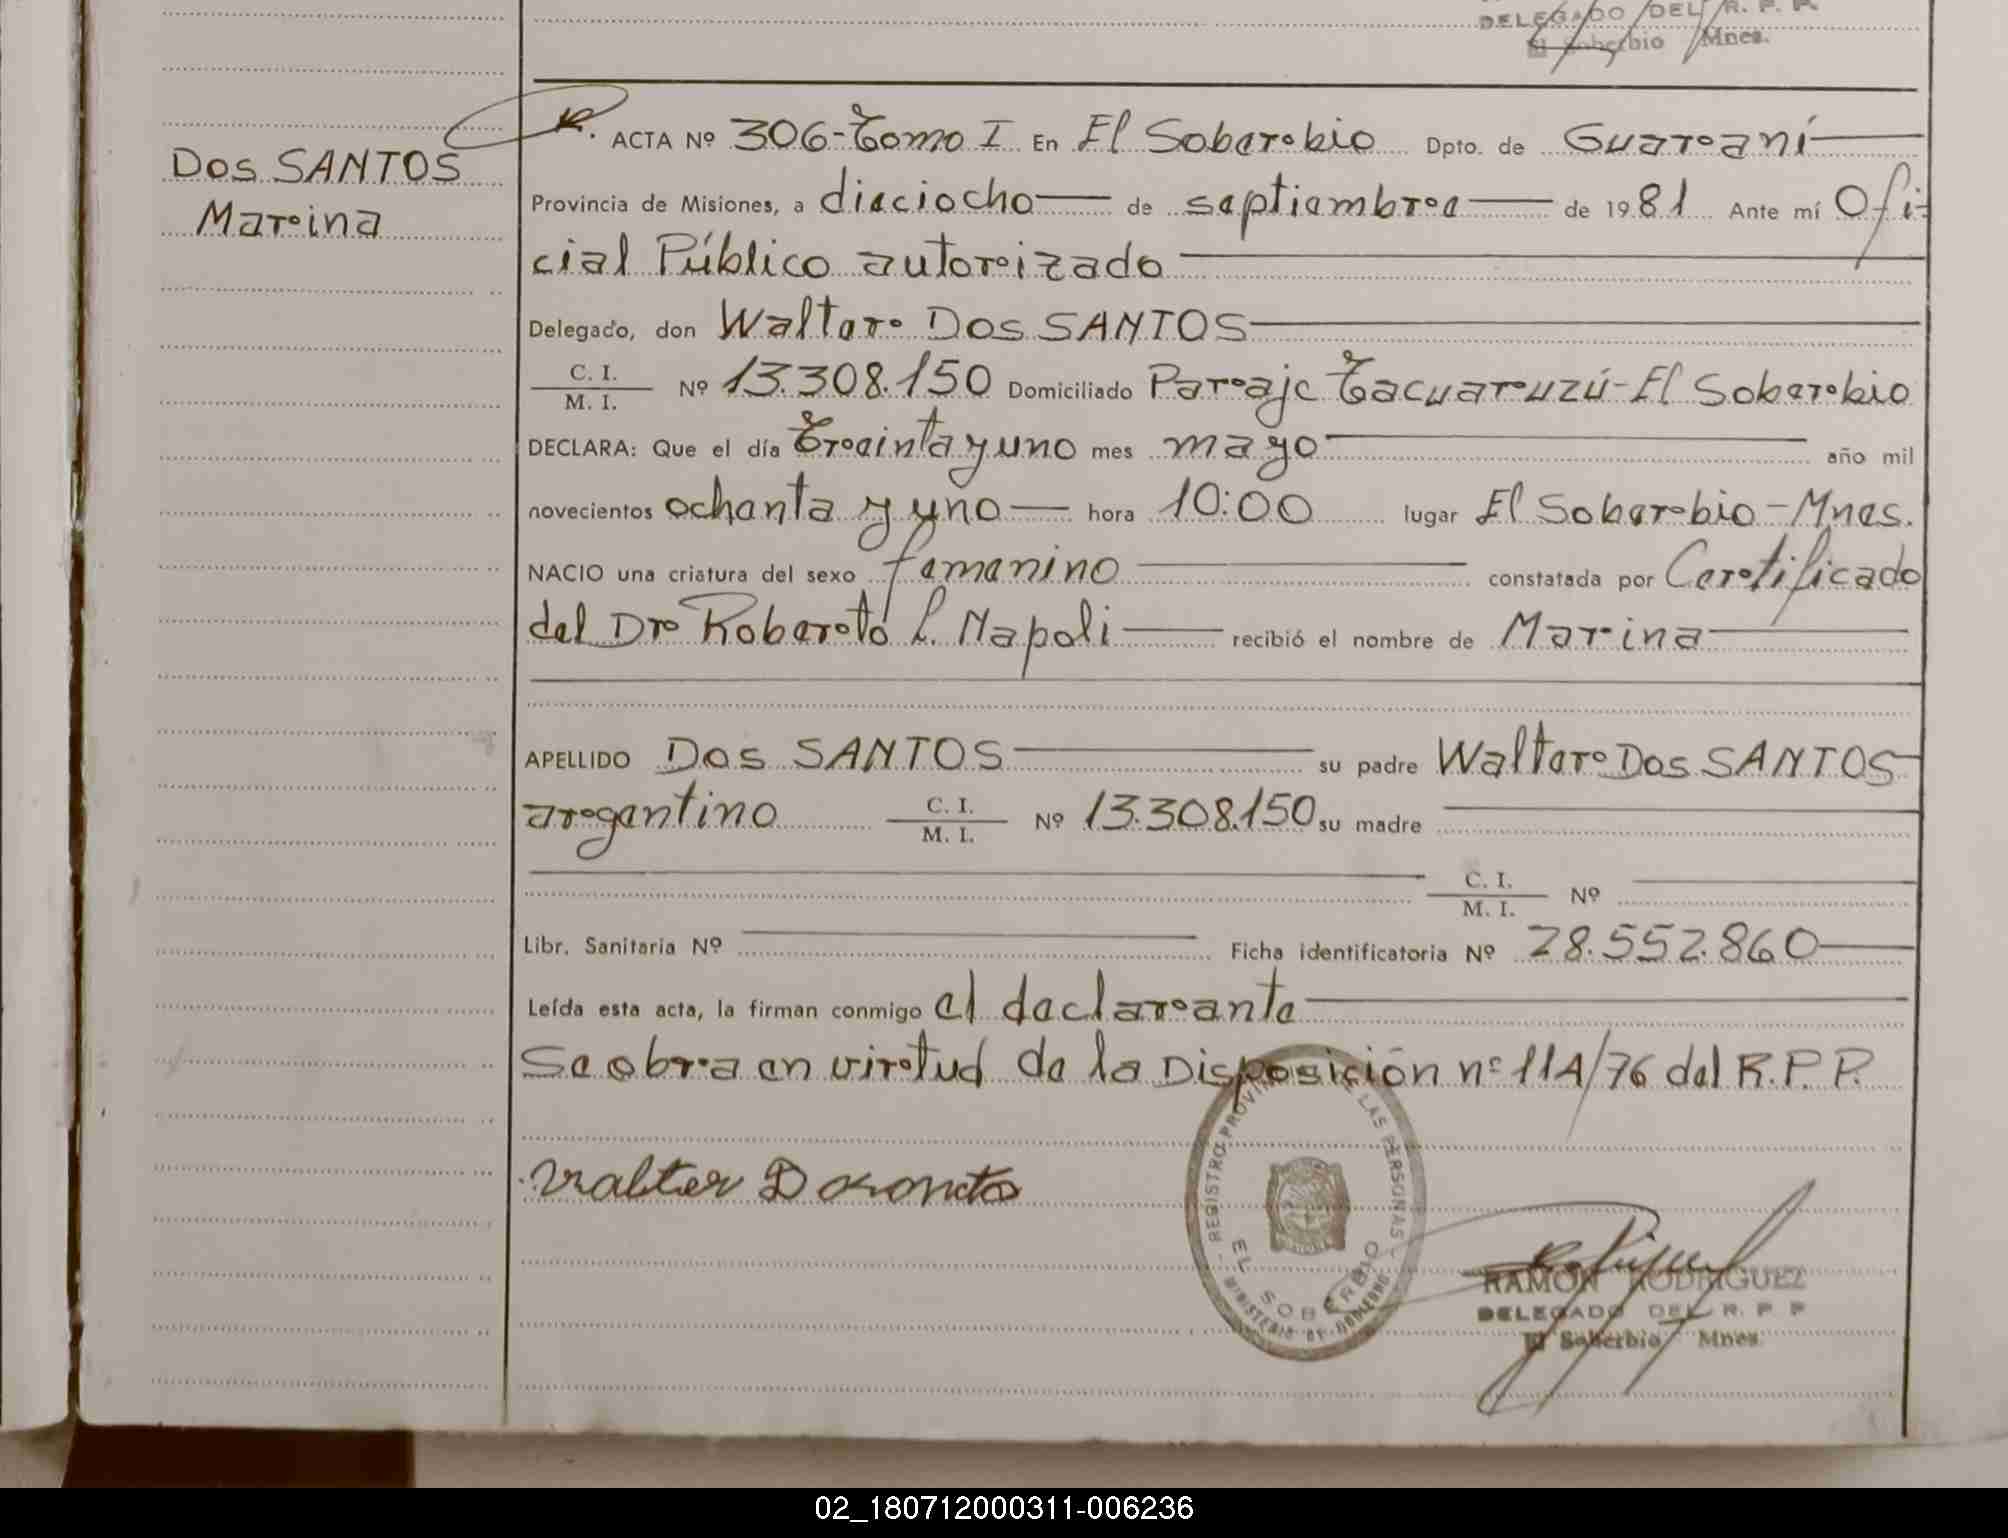 DELEGADO DEL R. P. P.
El Soberbio Mnes.
ACTA Nº 306-Tomo I En El Soberbio Dpto. de Guaraní
Dos SANTOS
Marina
Provincia de Misiones, a dieciocho de septiembre de 1981 Ante mí Ofi-
cial Público autorizado
Delegado, don Walter Dos SANTOS
C. I.
M. I.
Nº 13.308.150 Domiciliado Paraje Tacuaruzú-El Soberbio
DECLARA: Que el día Treinta y uno mes mayo año mil
novecientos ochenta y uno hora 10:00 lugar El Soberbio-Mnes.
NACIO una criatura del sexo femenino constatada por Certificado
del Dr Roberto L. Napoli recibió el nombre de Marina
APELLIDO Dos SANTOS su padre Walter Dos SANTOS
argentino C. I. M. I. Nº 13.308.150 su madre
C. I. M. I. Nº
Libr. Sanitaria Nº Ficha identificatoria Nº 28.552.860
Leída esta acta, la firman conmigo el declarante
Se obra en virtud de la Disposición nº 114/76 del R.P.P.
Walter D
REGISTRO PROVINCIAL DE LAS PERSONAS
EL SOBERBIO
MINISTERIO DE GOBIERNO
RAMON RODRIGUEZ
DELEGADO DEL R. P. P
El Soberbio Mnes.
02_180712000311-006236